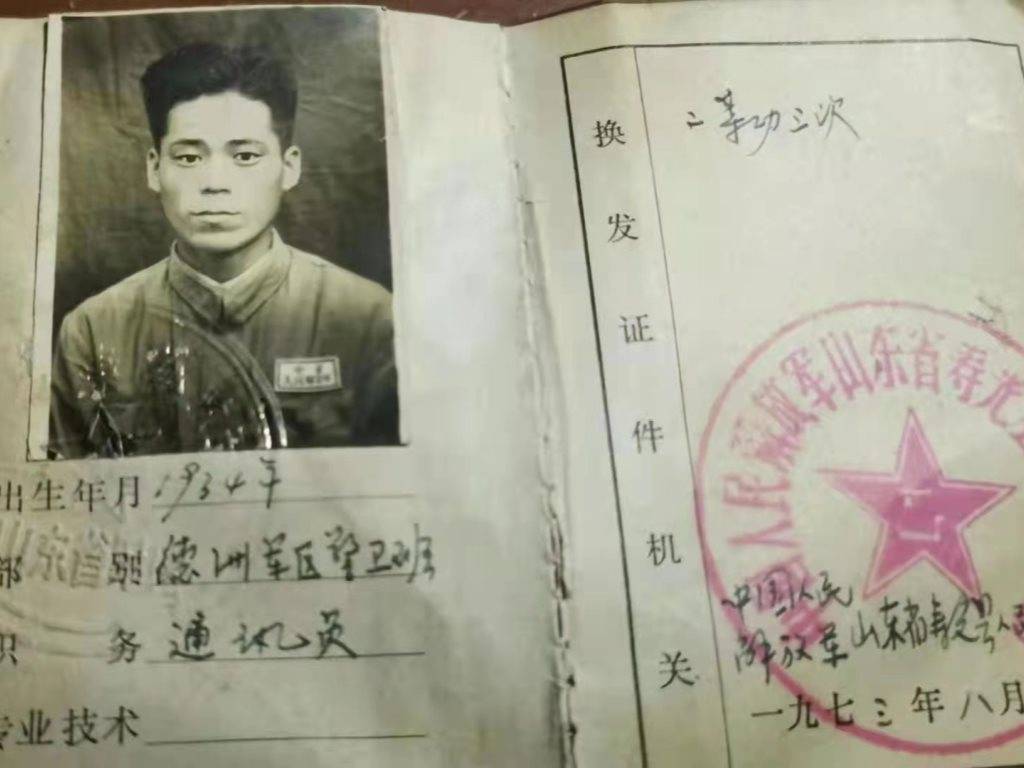 出生年月 1934年
部 别 德洲军区警卫班
职 务 通讯员
专业技术
换发证件机关
二等功三次
人民解放军山东省寿光
中国人民
解放军山东省寿光县人民
一九七三年八月